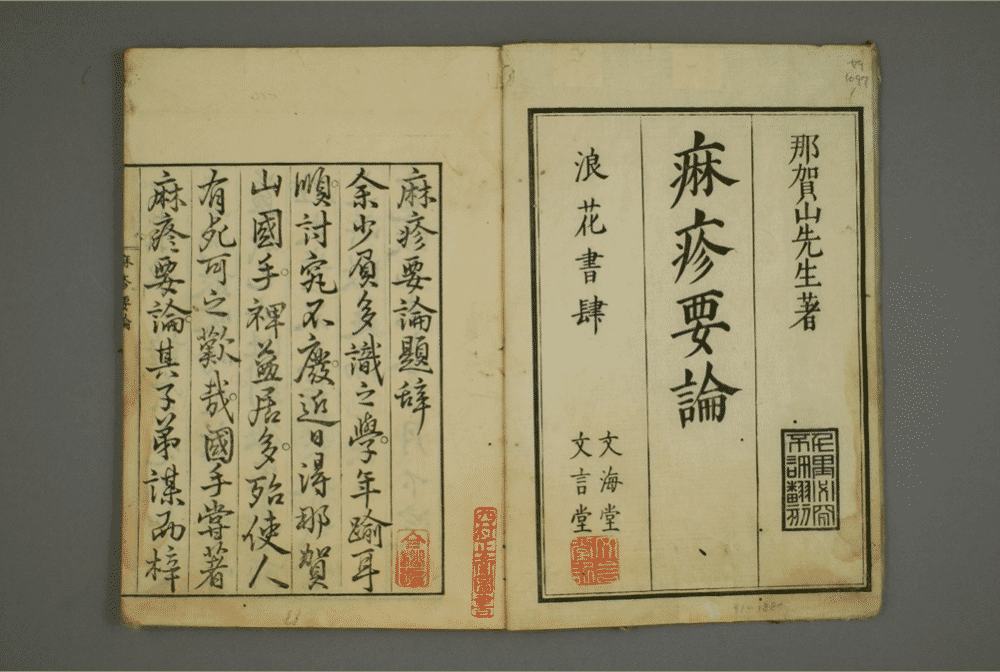 那賀山先生著
麻疹要論
浪花書肆
文海堂
文言堂
不許翻刻
麻疹要論題辞
余少屓多識之學年踰耳
順討究不廢近日得那賀
山國手裨益居多殆使人
有死可之歎哉國手嘗著
麻疹要論其子弟謀而梓
麻疹要論